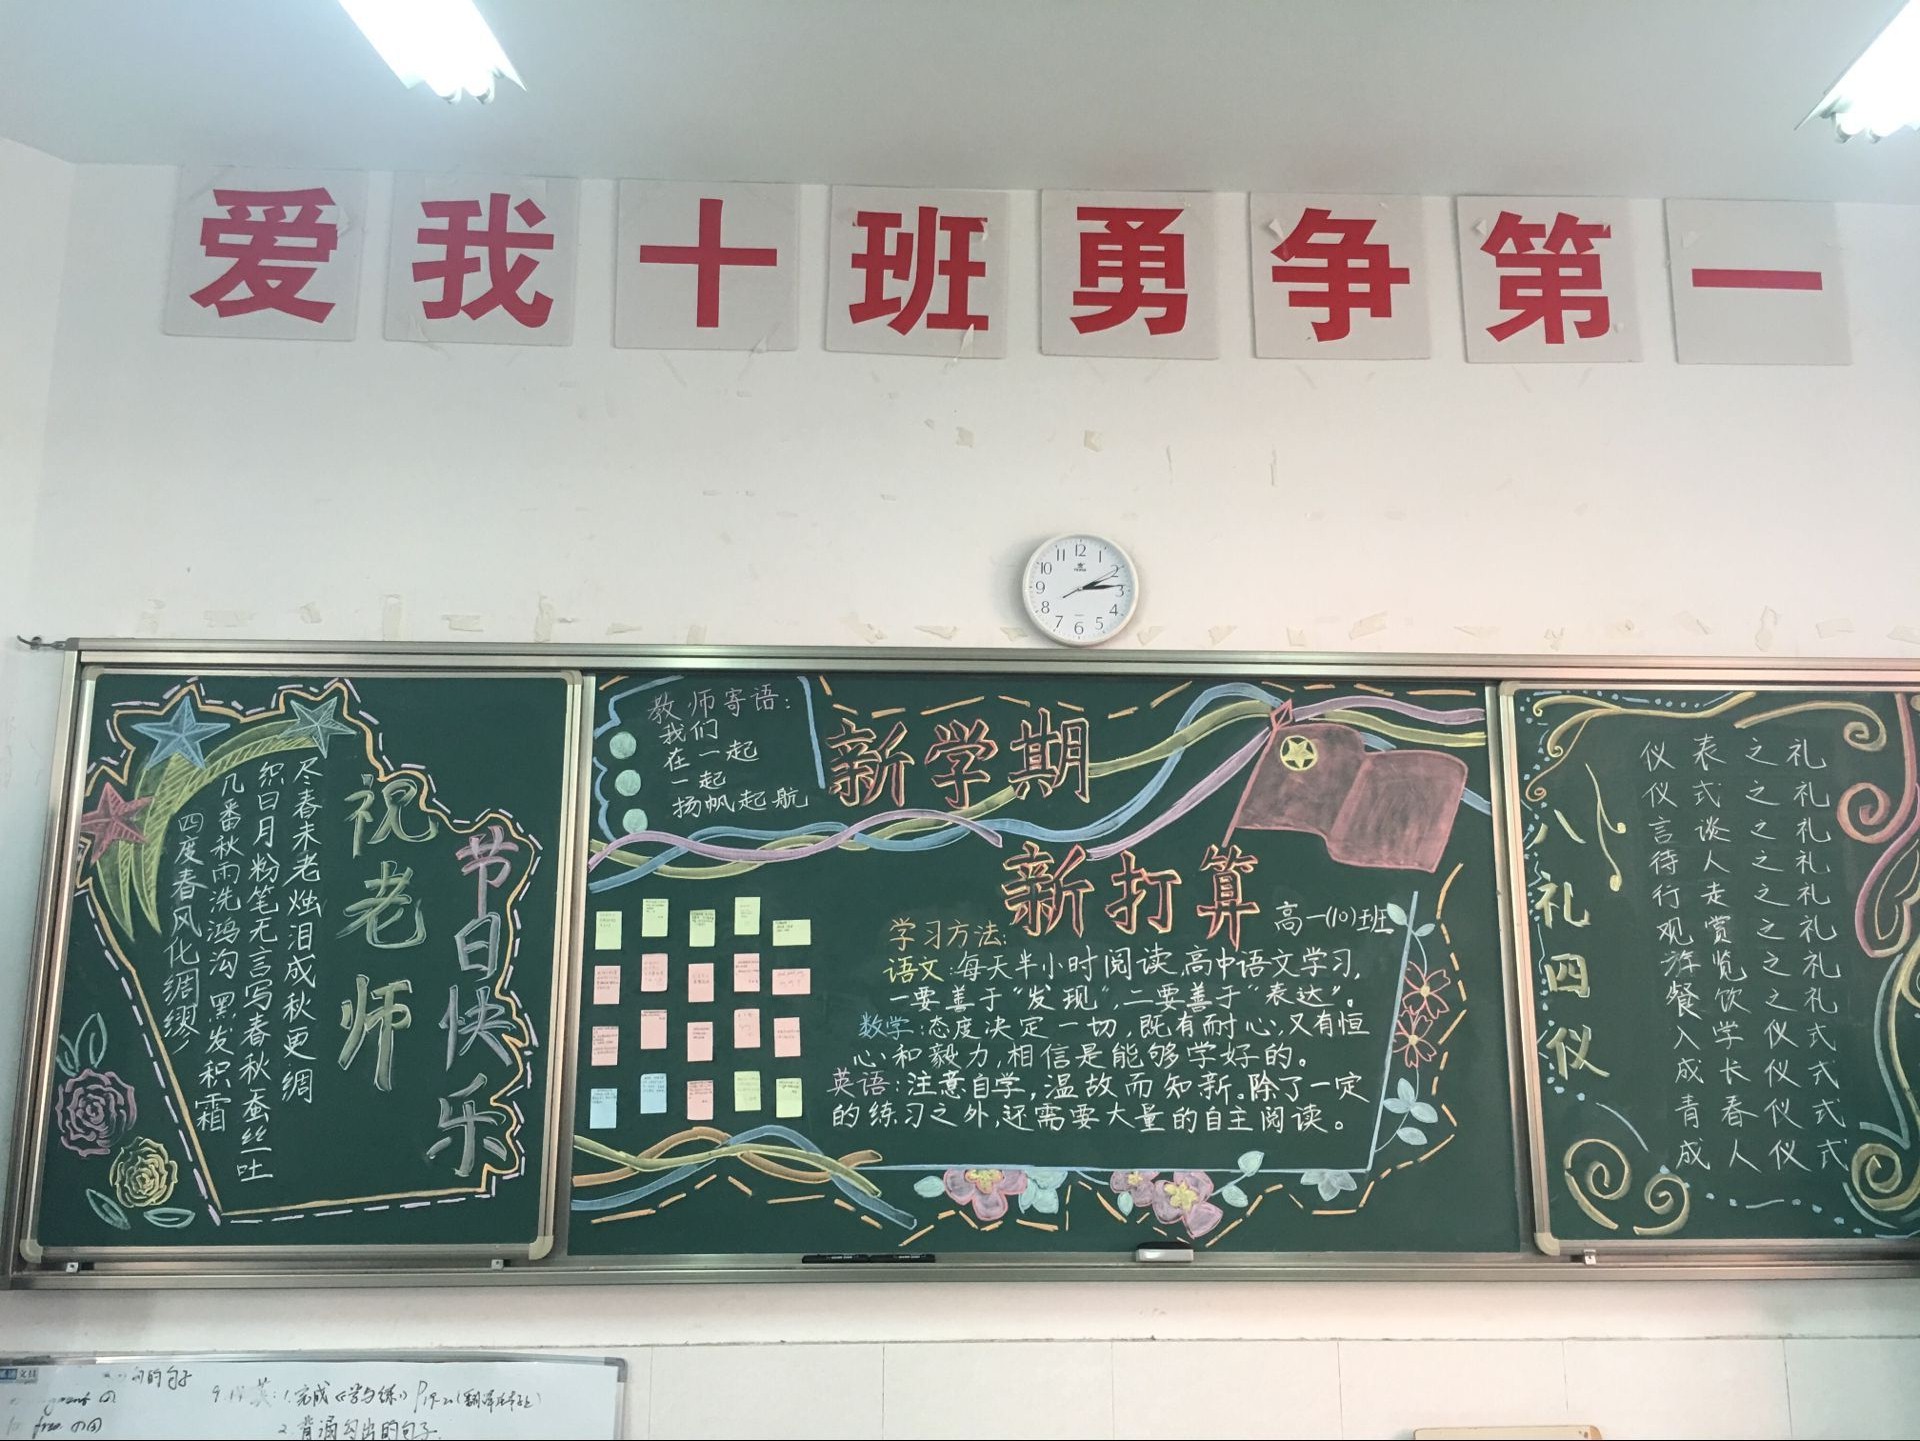 爱我十班勇争第一
祝老师
节日快乐
四度春风化绸缪
几番秋雨洗鸿沟黑发积霜
织日月粉笔无言写春秋蚕丝吐
尽春未老烛泪成秋更绸
教师寄语:
我们
在一起
一起
扬帆起航
新学期
新打算
高一(10)班
学习方法:
语文:每天半小时阅读,高中语文学习,
一要善于“发现”,二要善于“表达”。
数学:态度决定一切,既有耐心,又有恒
心和毅力,相信是能够学好的。
英语:注意自学,温故而知新。除了一定
的练习之外,还需要大量的自主阅读。
八礼四仪
仪表之礼
仪式之礼
言谈之礼
待人之礼
行走之礼
观赏之礼
游览之礼
餐饮之礼
入学仪式
成长仪式
青春仪式
成人仪式
12
1
2
3
4
5
6
7
8
9
10
11
的句子
英:1.完成《学与练》
2.背诵勾出的句子.